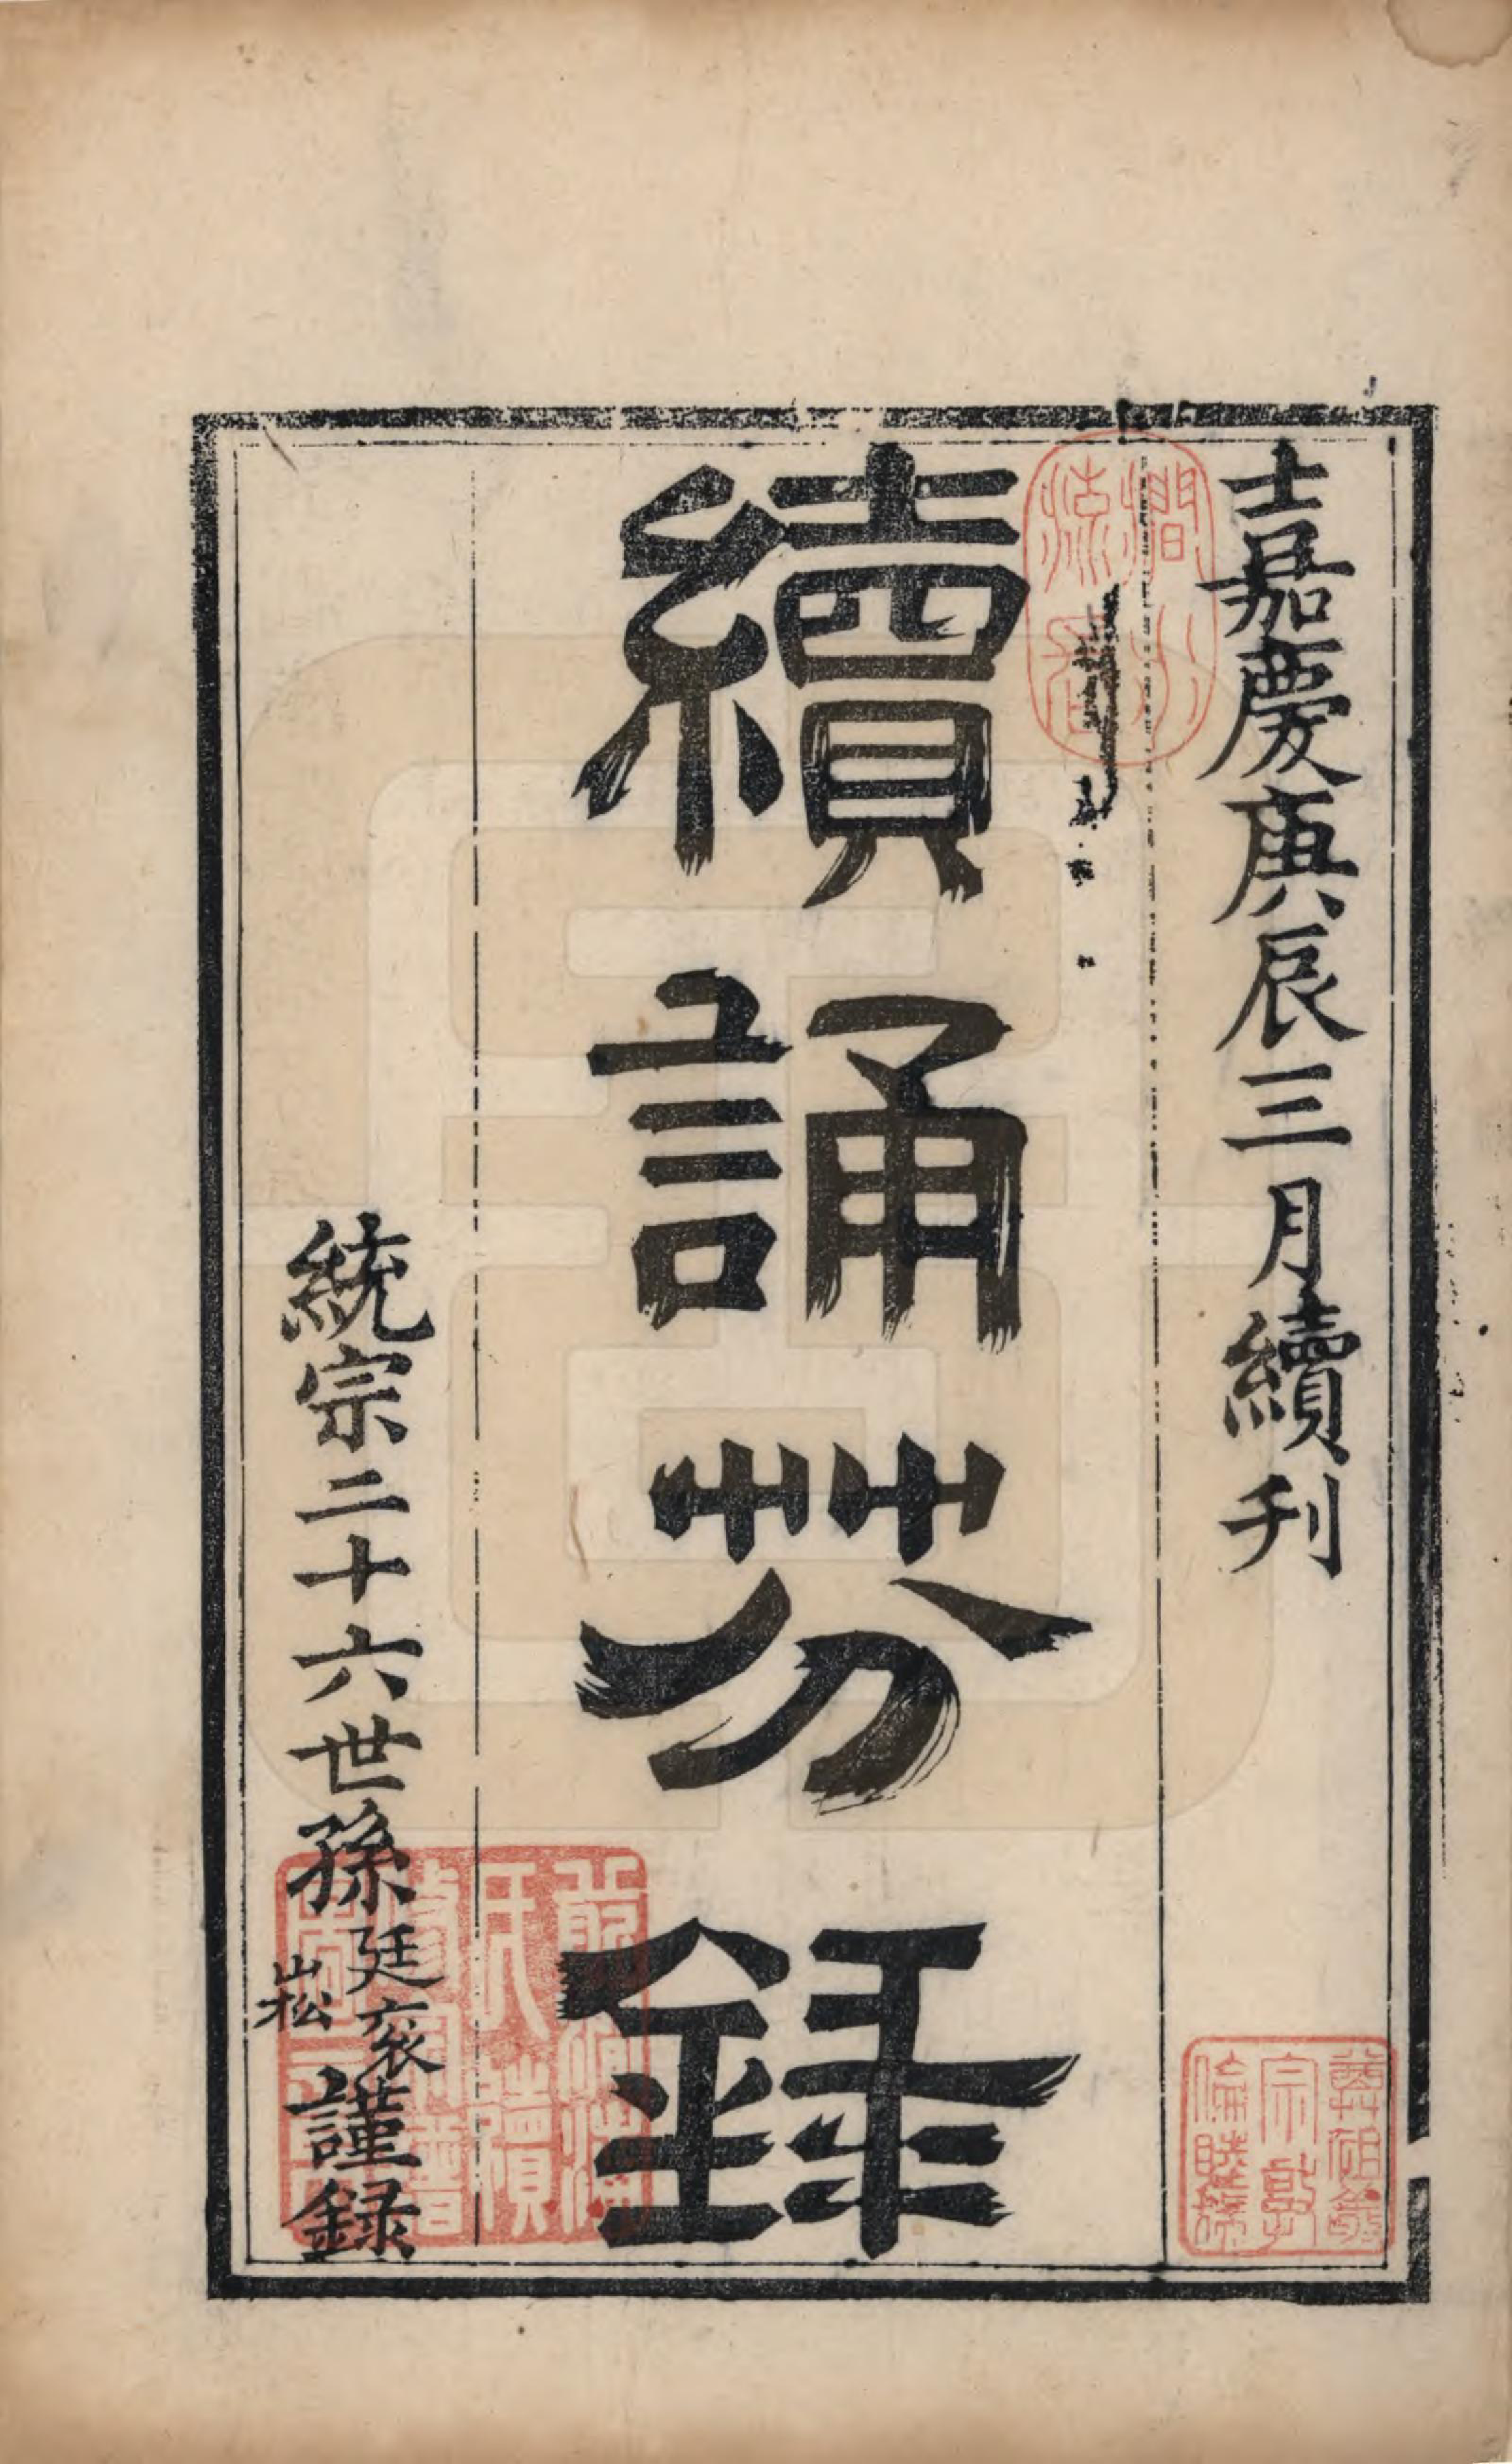 嘉慶庚辰三月續刊
續誦芬錄
統宗二十六世孫廷裘崧謹録